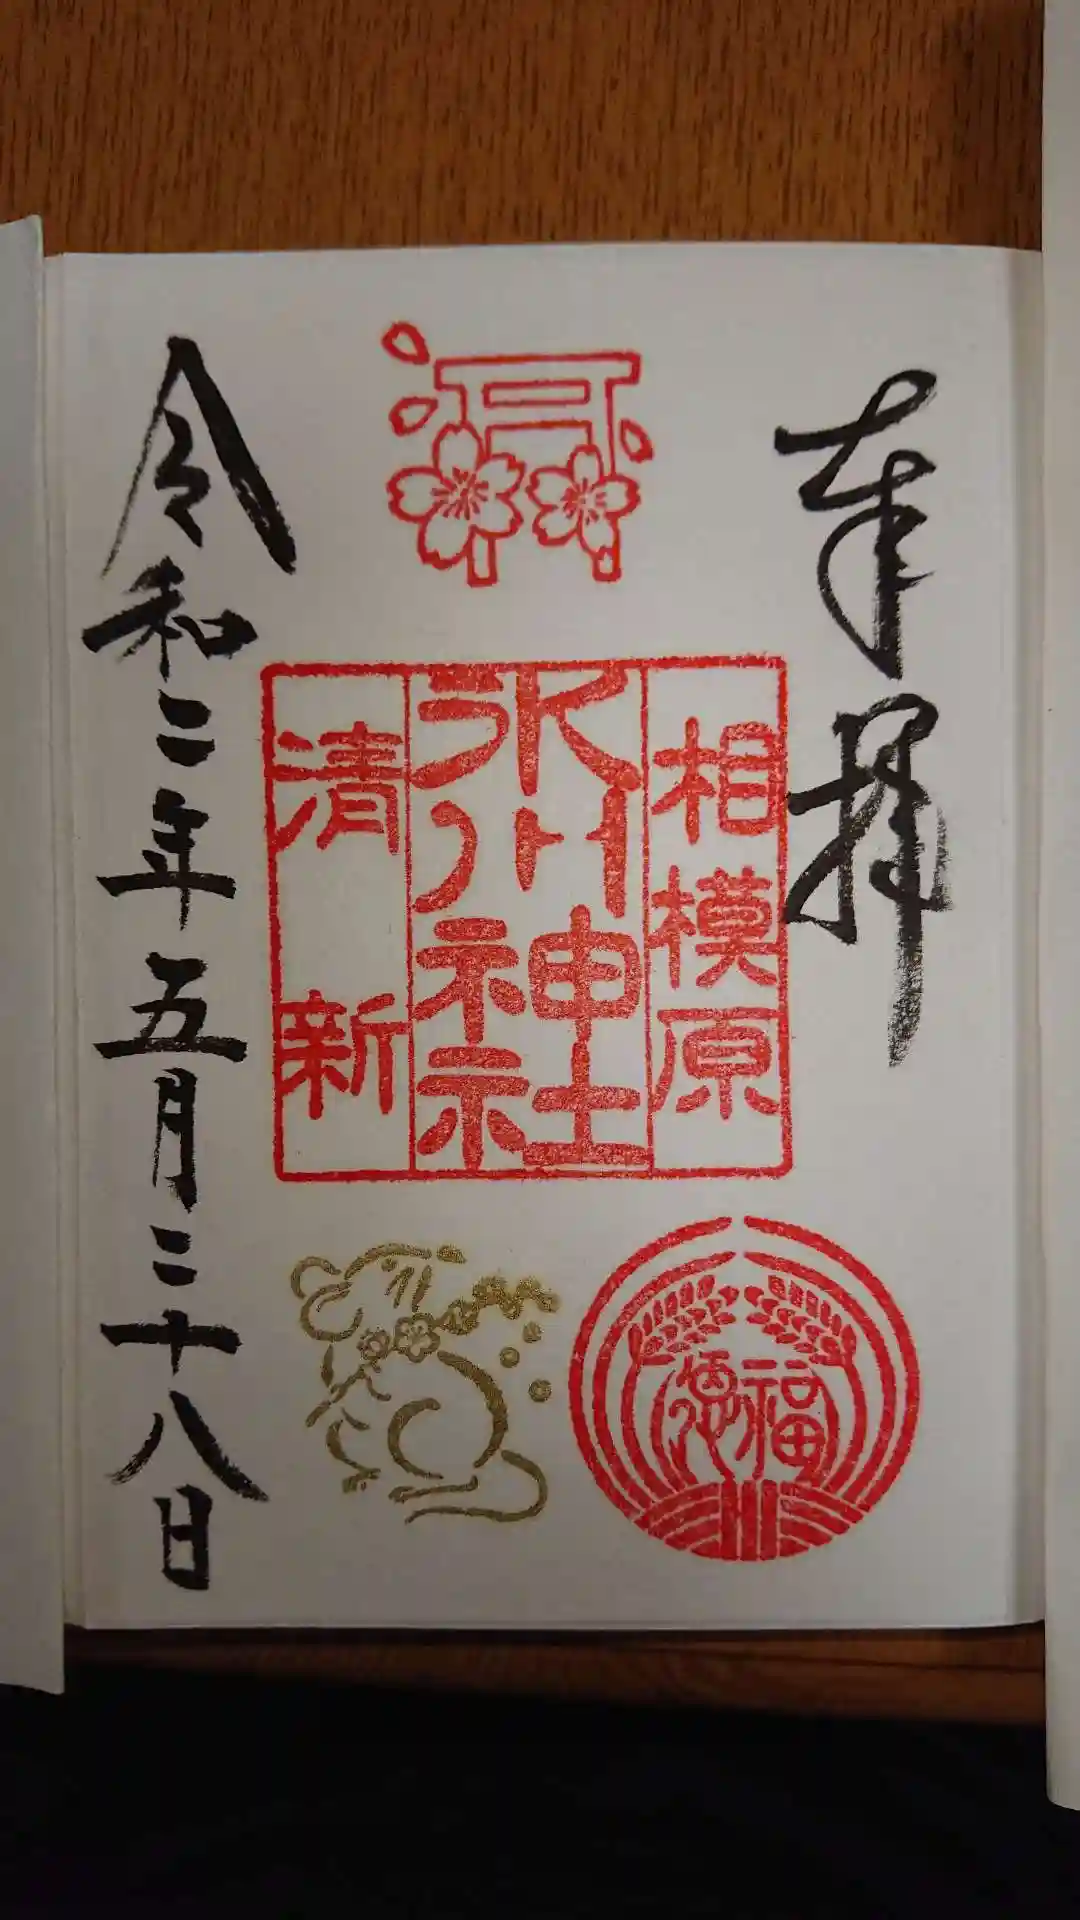 奉拝
相模原
氷川神社
清新
福徳
令和二年五月二十八日